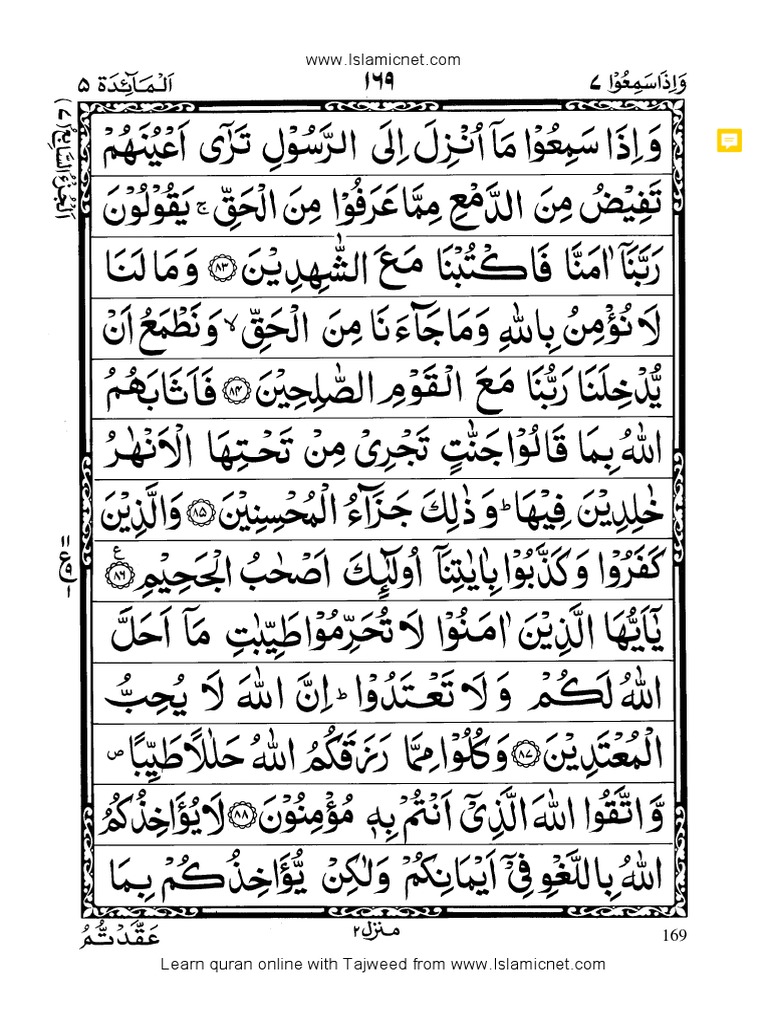 www.Islamicnet.com
وَاِذَاسَمِعُوْا ٧
١٦٩
اَلْمَآئِدَة ٥
اَلْجُزْءُ السَّابِعُ (٧)
وَاِذَا سَمِعُوْا مَآ اُنْزِلَ اِلَى الرَّسُوْلِ تَرٰٓى اَعْيُنَهُمْ
تَفِيْضُ مِنَ الدَّمْعِ مِمَّا عَرَفُوْا مِنَ الْحَقِّ ۚ يَقُوْلُوْنَ
رَبَّنَآ اٰمَنَّا فَاكْتُبْنَا مَعَ الشّٰهِدِيْنَ ﴿٨٣﴾ وَمَا لَنَا
لَا نُؤْمِنُ بِاللّٰهِ وَمَا جَآءَنَا مِنَ الْحَقِّ ۙ وَنَطْمَعُ اَنْ
يُّدْخِلَنَا رَبُّنَا مَعَ الْقَوْمِ الصّٰلِحِيْنَ ﴿٨٤﴾ فَاَثَابَهُمُ
اللّٰهُ بِمَا قَالُوْا جَنّٰتٍ تَجْرِيْ مِنْ تَحْتِهَا الْاَنْهٰرُ
خٰلِدِيْنَ فِيْهَا ؕ وَذٰلِكَ جَزَآءُ الْمُحْسِنِيْنَ ﴿٨٥﴾ وَالَّذِيْنَ
كَفَرُوْا وَكَذَّبُوْا بِاٰيٰتِنَآ اُولٰٓئِكَ اَصْحٰبُ الْجَحِيْمِ ﴿٨٦﴾ ع
يٰٓاَيُّهَا الَّذِيْنَ اٰمَنُوْا لَا تُحَرِّمُوْا طَيِّبٰتِ مَآ اَحَلَّ
اللّٰهُ لَكُمْ وَلَا تَعْتَدُوْا ؕ اِنَّ اللّٰهَ لَا يُحِبُّ
الْمُعْتَدِيْنَ ﴿٨٧﴾ وَكُلُوْا مِمَّا رَزَقَكُمُ اللّٰهُ حَلٰلًا طَيِّبًا ص
وَّاتَّقُوا اللّٰهَ الَّذِيْٓ اَنْتُمْ بِهٖ مُؤْمِنُوْنَ ﴿٨٨﴾ لَا يُؤَاخِذُكُمُ
اللّٰهُ بِاللَّغْوِ فِيْٓ اَيْمَانِكُمْ وَلٰكِنْ يُّؤَاخِذُكُمْ بِمَا
169
منزل ٢
عَقَّدْتُّمُ
Learn quran online with Tajweed from www.Islamicnet.com